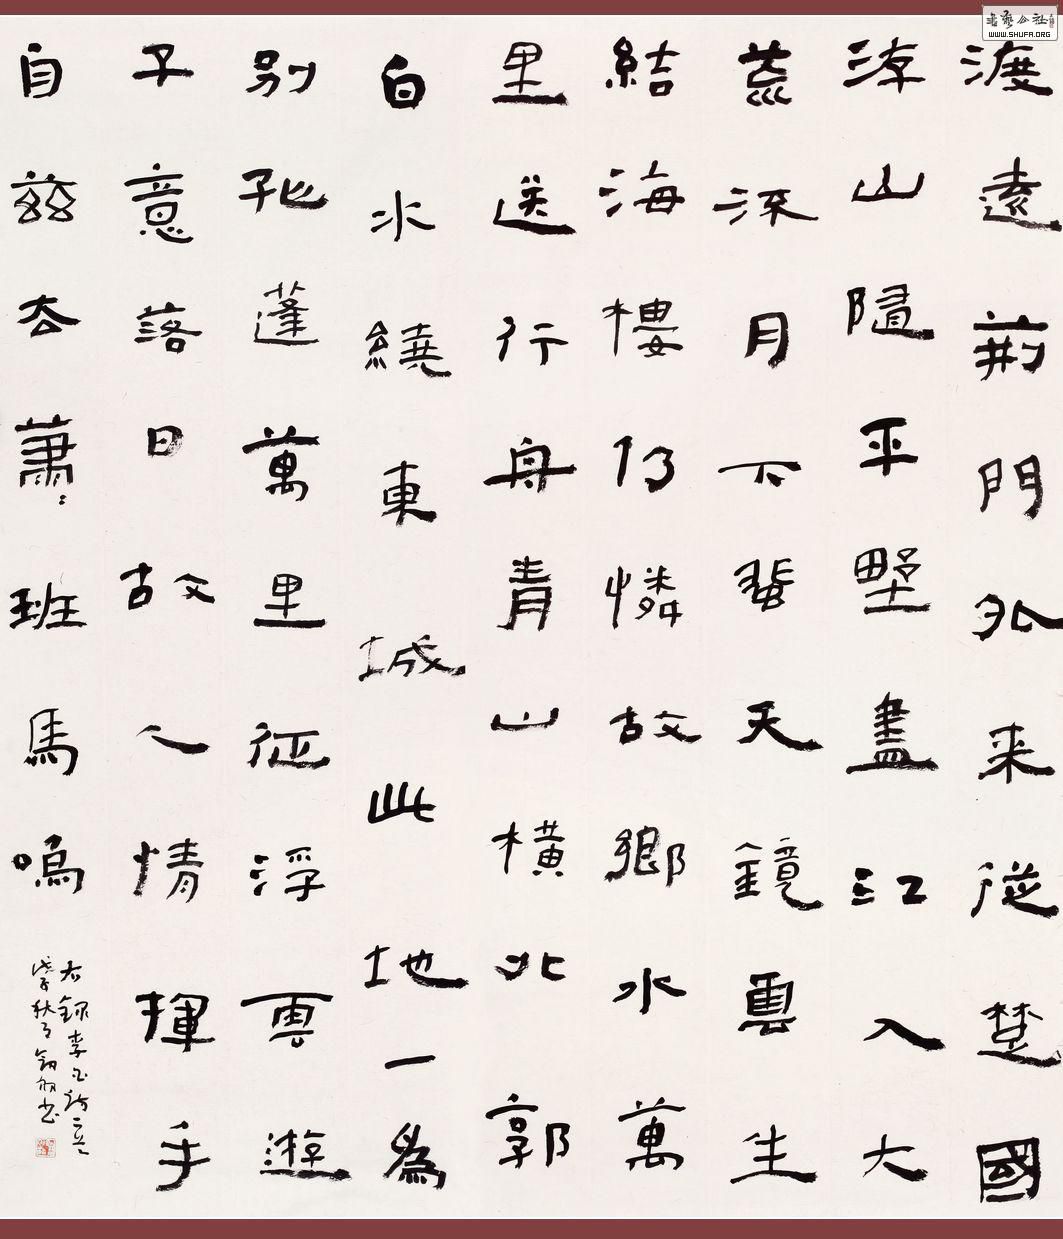 渡遠荊門外来從楚國
游山隨平墅盡江入大
荒流月下蜚天鏡雲生
結海樓仍憐故鄉水萬
里送行舟青山橫北郭
白水繞東城此地一為
別孤蓬萬里征浮雲遊
子意落日故人情揮手
自茲去蕭〻班馬鳴
右錄李白詩二首
戊子秋月書
書藝公社
WWW.SHUFA.ORG